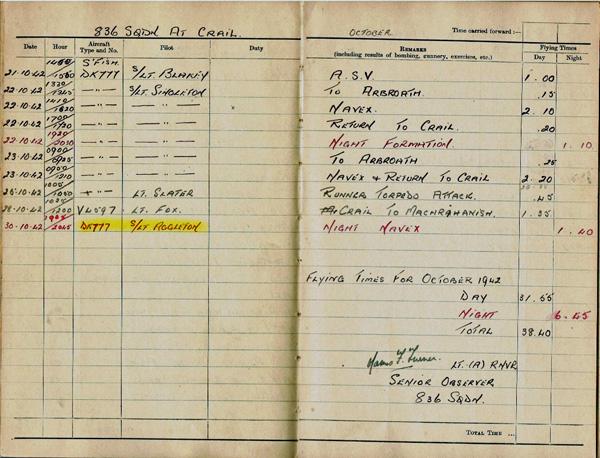 836 SQDN AT CRAIL.
OCTOBER
Time carried forward :—
Date Hour Aircraft Type and No. Pilot Duty REMARKS (including results of bombing, gunnery, exercises, etc.) Flying Times Day Night
S'FISH.
21.10.42 1400/1500 DK777 S/LT BLAKEY A.S.V. 1.00
22.10.42 1330/1345 —"— S/LT SINGLETON TO ARBROATH. .15
22.10.42 1410/1620 —"— —"— NAVEX. 2.10
22.10.42 1700/1720 —"— —"— RETURN TO CRAIL. .20
22.10.42 1920/2030 —"— —"— NIGHT FORMATION. 1.10
23.10.42 0900/0925 —"— —"— TO ARBROATH .25
23.10.42 /1210 —"— —"— NAVEX & RETURN TO CRAIL 2.20
26.10.42 1005/1050 —"— LT. SLATER RUNNER TORPEDO ATTACK. .45
28.10.42 /1200 V4597 LT. FOX. CRAIL TO MACHRIHANISH. 1.35
30.10.42 1905/2045 DK777 S/LT AGGLETON NIGHT NAVEX 1.40
FLYING TIMES FOR OCTOBER 1942
DAY 31.55
NIGHT 6.45
TOTAL 38.40
Turner. LT. (A) RNVR
SENIOR OBSERVER
836 SQDN.
TOTAL TIME ...